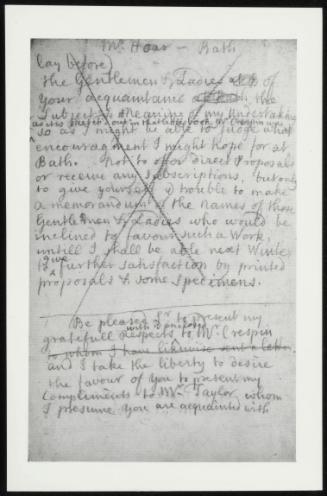 Mr. Hoar — Bath
lay before
the Gentlemen & Ladies of
your acquaintance the
Subject & Meaning of my Undertaking
as it is set out in that
so as I might be able to judge what
encouragment I might hope for at
Bath. Not to offer direct Proposals
or receive any Subscriptions, but only
to give yourself trouble to make
a memorandum of the Names of those
Gentlemen & Ladies who would be
inclined to favour such a Work,
untill I shall be able next Winter
to give further satisfaction by printed
proposals & some Specimens.
Be pleased Sr. to present my
gratefull respects to Mr. Crespin
to whom I have likewise sent a letter
and I take the liberty to desire
the favour of you to present my
Compliments to Mr. Taylor whom
I presume you are acquainted with